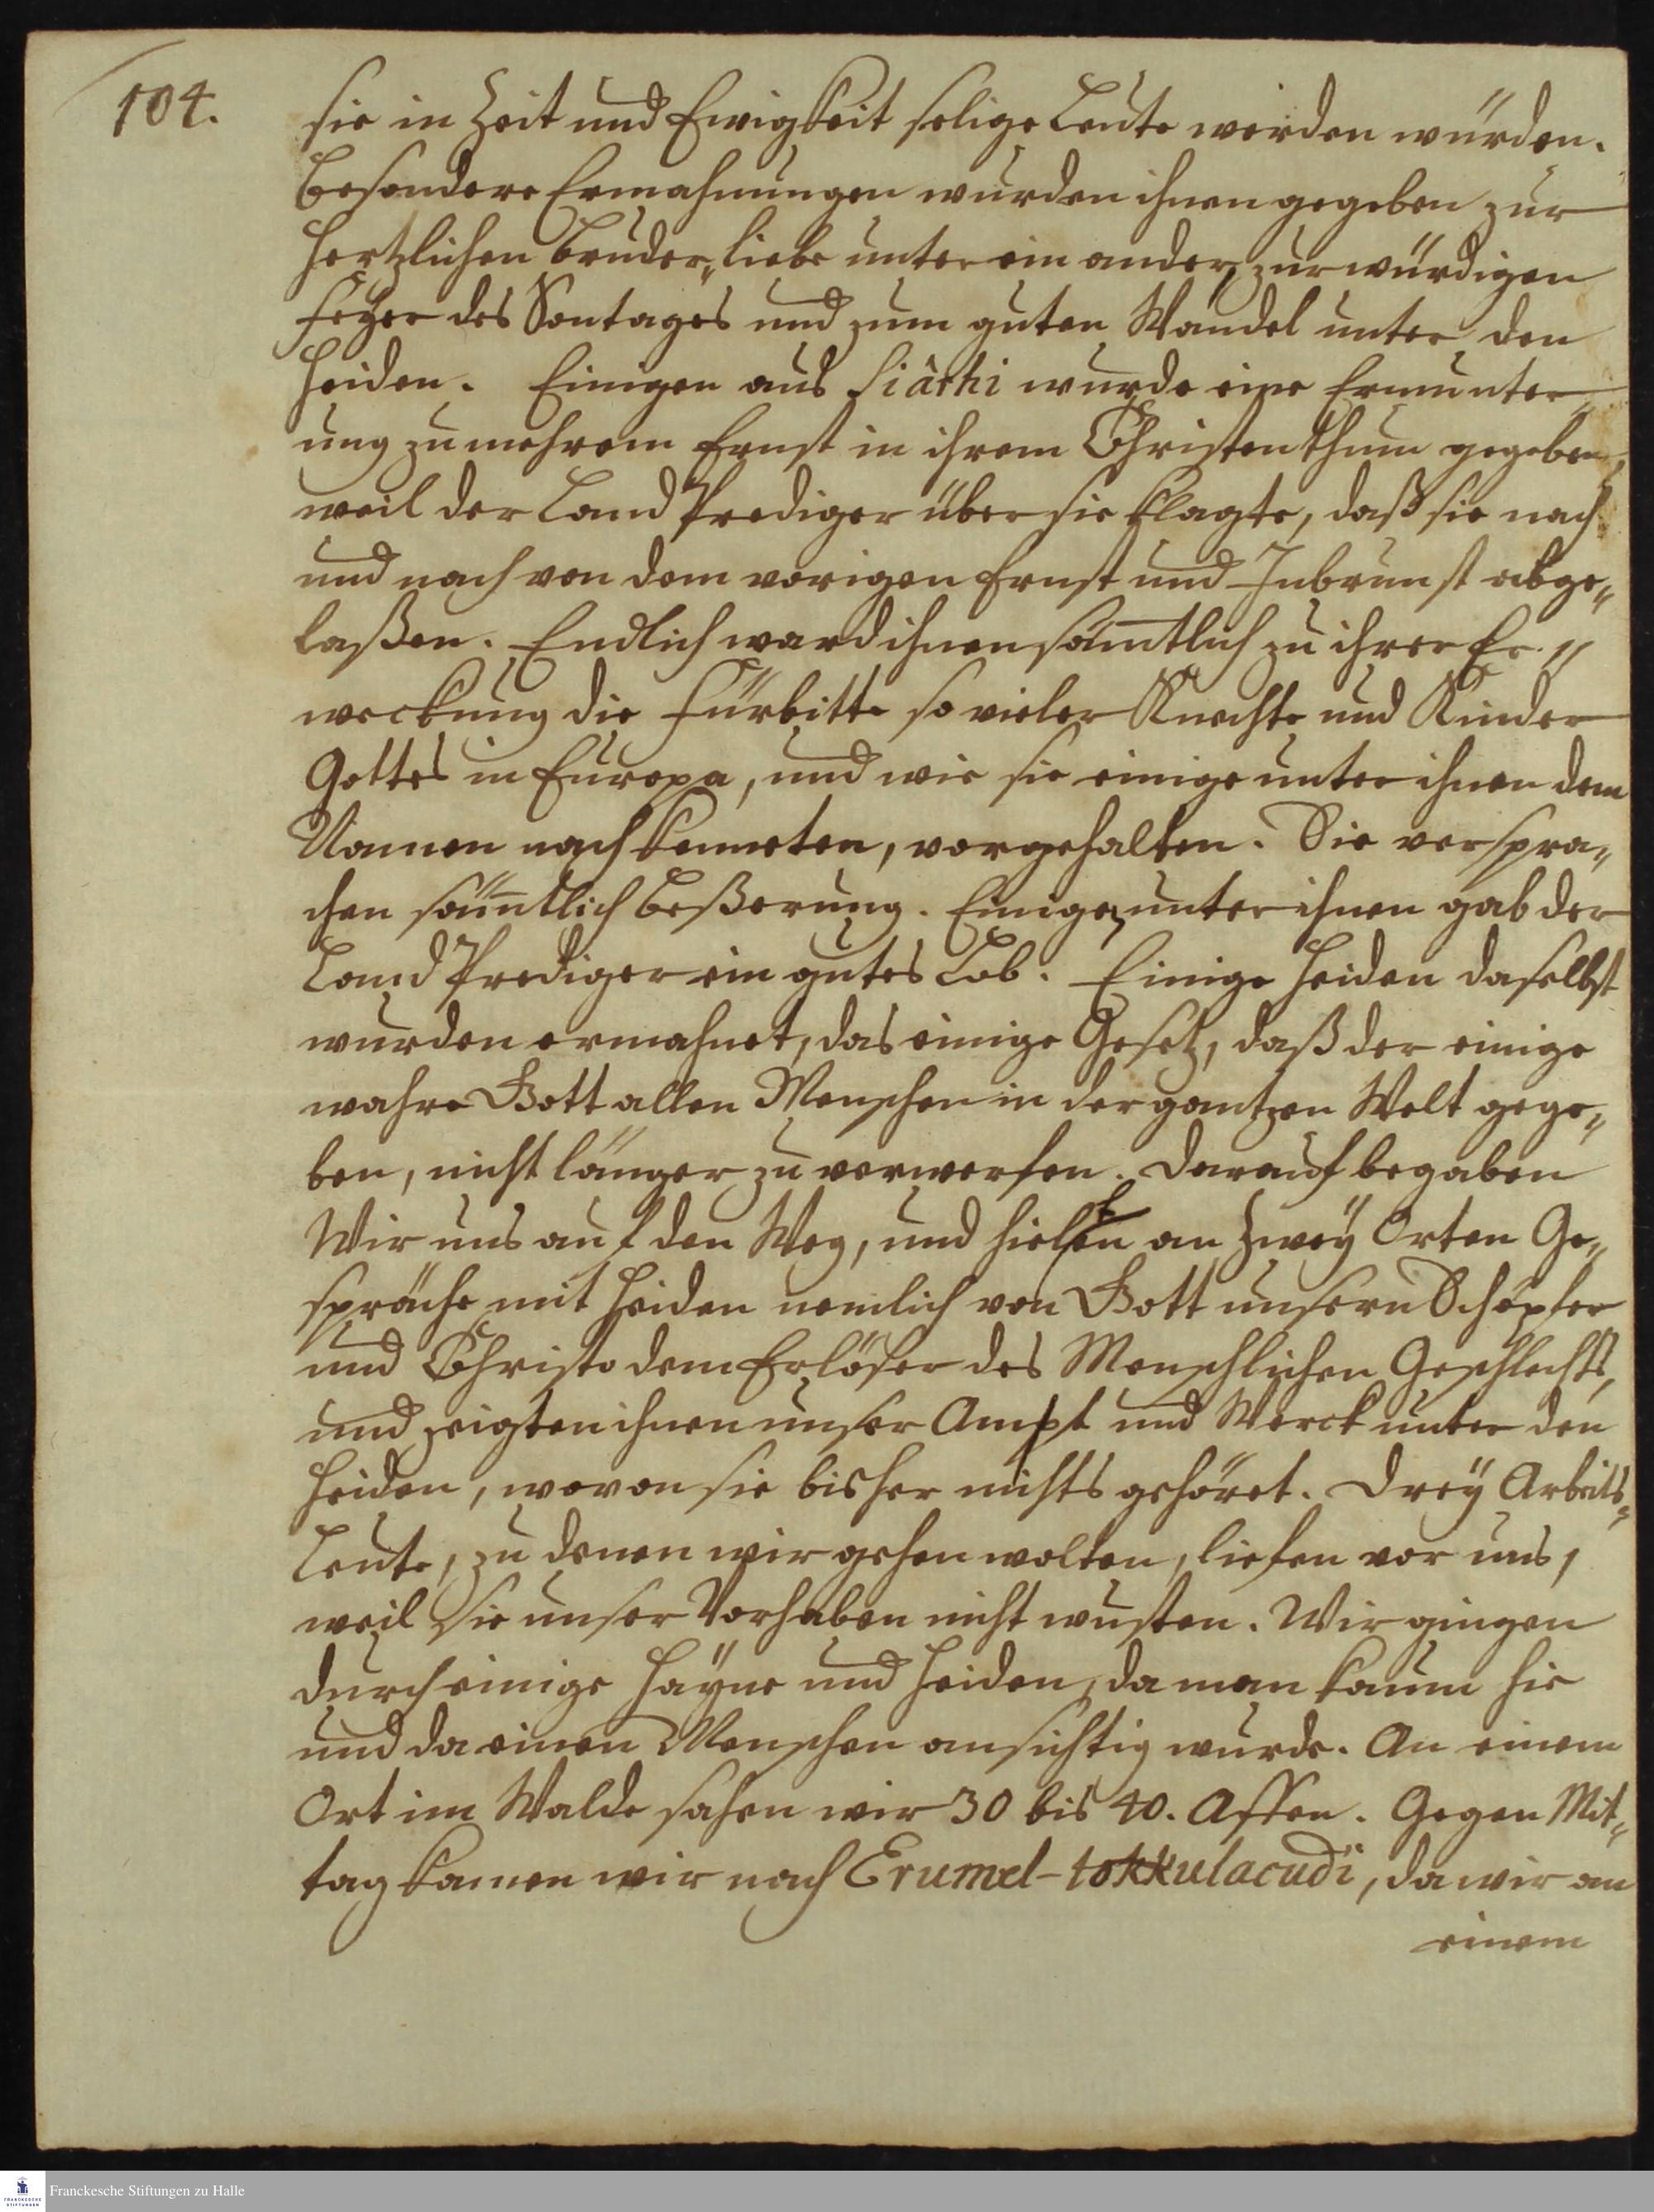 104.
sie in Zeit und Ewigkeit selige Leute werden würden.
Besondere Ermahnungen wurden ihnen gegeben zur
hertzlichen Bruder„liebe unter ein ander, zur würdigen
Feyer des Sontages und zum guten Wandel unter den
Heiden. Einigen aus Siârhi wurde eine Ermunter„
ung zu mehrem Ernst in ihrem Christenthum gegeben,
weil der Land Prediger über sie klagte, daß sie nach
und nach von dem vorigen Ernst und Inbrunst abge„
laßen. Endlich ward ihnen sämtlich zu ihrer Er„
weckung die Fürbitte so vieler Knechte und Kinder
Gottes in Europa, und wie sie einige unter ihnen dem
Namen nach kenneten, vorgehalten. Sie verspra„
chen sämtlich Beßerung. Einigen unter ihnen gab der
Land Prediger ein gutes Lob. Einige Heiden daselbst
wurden ermahnet, das einige Gesetz, daß der einige
wahre Gott allen Menschen in der gantzen Welt gege„
ben, nicht länger zu verwerfen. Darauf begaben
Wir uns auf den Weg, und hielten an zwey Orten Ge„
spräche mit Heiden nemlich von Gott unsern Schöpfer
und Christo dem Erlöser des Menschlichen Geschlechts,
und zeigten ihnen unser Ampt und Werck unter den
Heiden, wovon sie bisher nichts gehöret. Drey Arbeits„
Leute, zu denen wir gehen wolten, liefen vor uns,
weil sie unser Vorhaben nicht wusten. Wir gingen
durch einige Hayne und Heiden, da man kaum hie
und da einen Menschen ansichtig wurde. An einem
Ort im Walde sahen wir 30 bis 40. Affen. Gegen Mit„
tag kamen wir nach Erumel-tokkulacudi, da wir an
einem
FRANCKESCHE STIFTUNGEN
Franckesche Stiftungen zu Halle